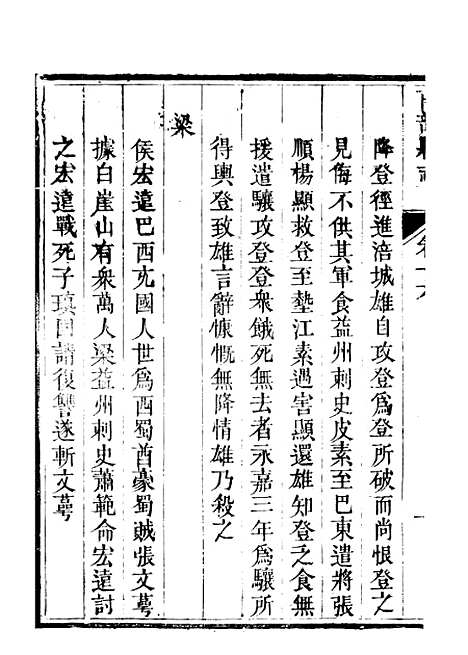 降登徑進涪城雄自攻登爲登所破而尚恨登之
見侮不供其軍食益州刺史皮素至巴東遣將張
順楊顯救登至墊江素遇害顯還雄知登之食無
援遣驤攻登登衆餓死無去者永嘉三年爲驤所
得輿登致雄言辭慷慨無降情雄乃殺之
梁
侯宏遠巴西充國人世爲西蜀酋豪蜀賊張文萼
據白崖山有衆萬人梁益州刺史蕭範命宏遠討
之宏遠戰死子瑱固請復讐遂斬文萼